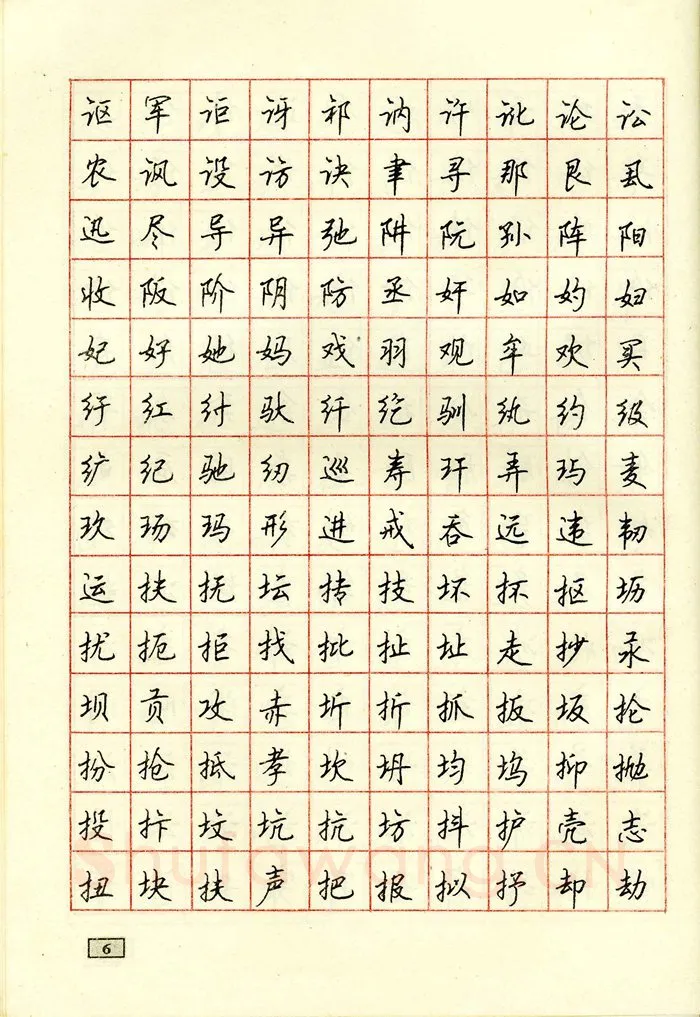 讴军讵讶祁讷许讹论讼
农讽设访诀聿寻那艮虱
迅尽导异弛阱阮孙阵阳
收阪阶阴防丞奸如妁妇
妃好她妈戏羽观牟欢买
纡红纣驮纤纥驯纨约级
纩纪驰纫巡寿玕弄玙麦
玖玚玛形进戒吞远违韧
运扶抚坛抟技坏抔抠坜
扰扼拒找批扯址走抄汞
坝贡攻赤圻折抓扳坂抡
扮抢抵孝坎坍均坞抑抛
投抃坟坑抗坊抖护壳志
扭块声把报拟抒却劫
6
Shufawang.CN